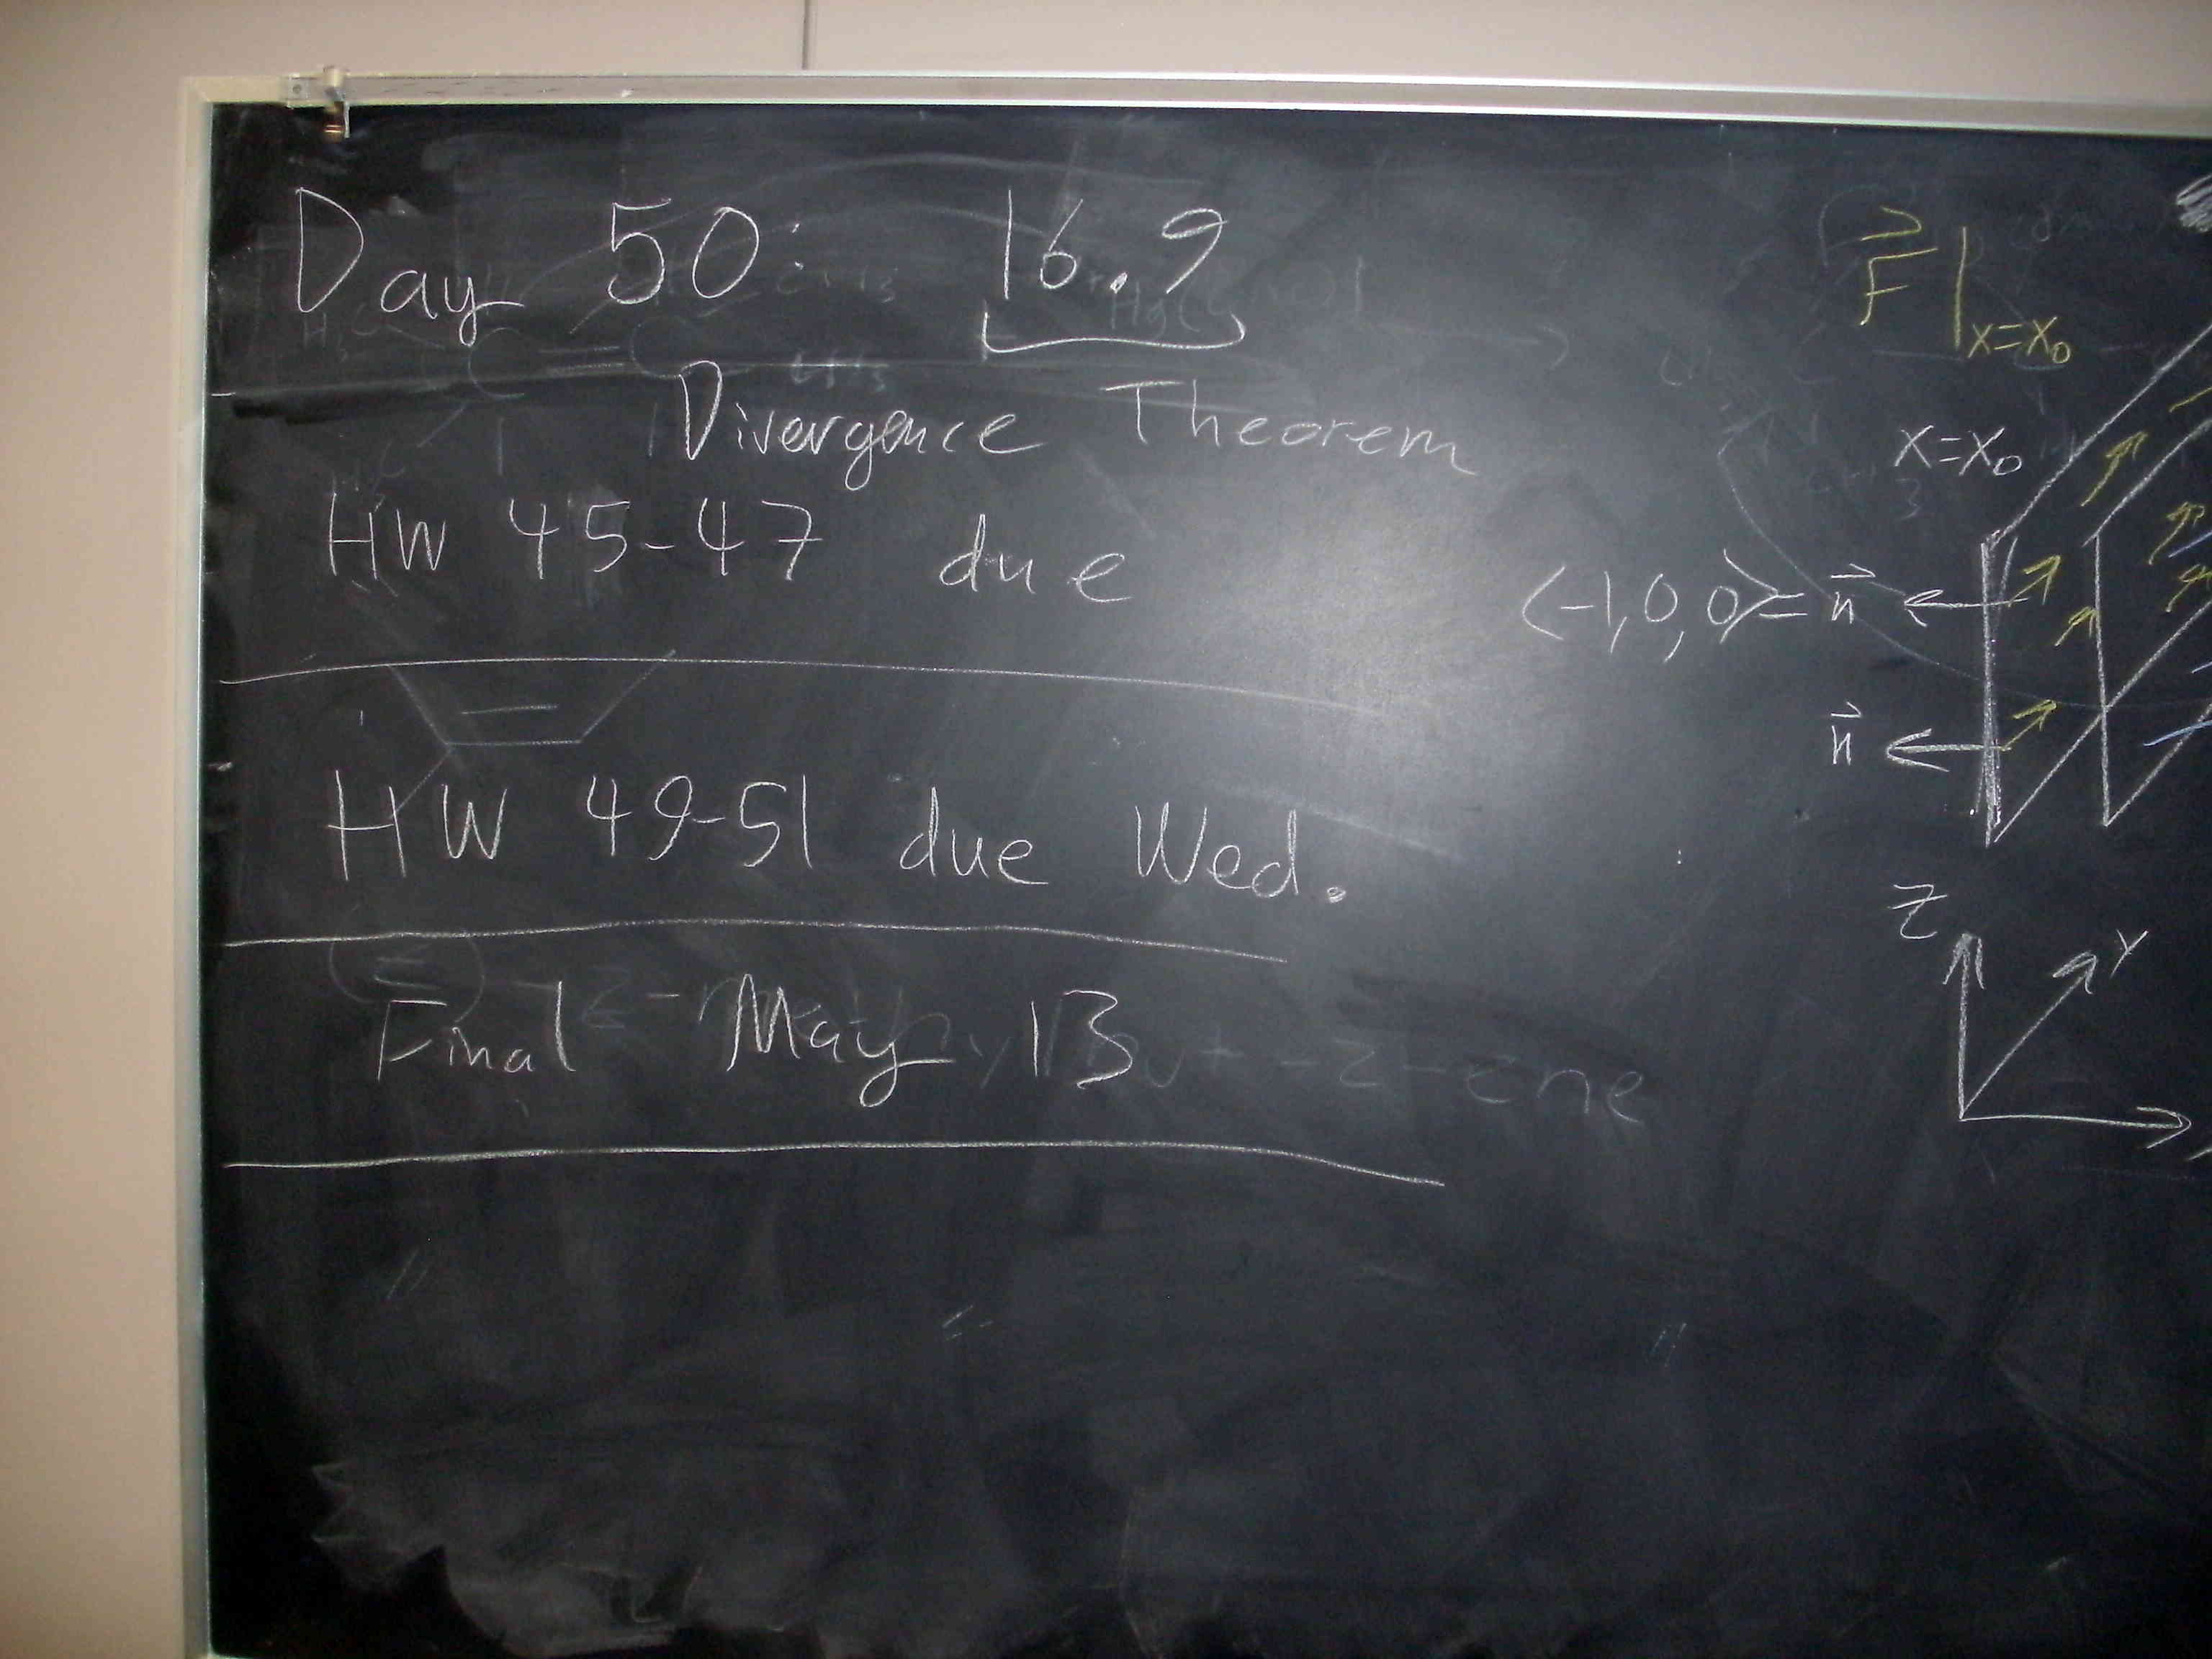 Day 50: 16.9
Divergence Theorem
HW 45-47 due
HW 49-51 due Wed.
Final May 13
F⃗|x=x₀
x=x₀
⟨-1,0,0⟩= n⃗
n⃗
z
y